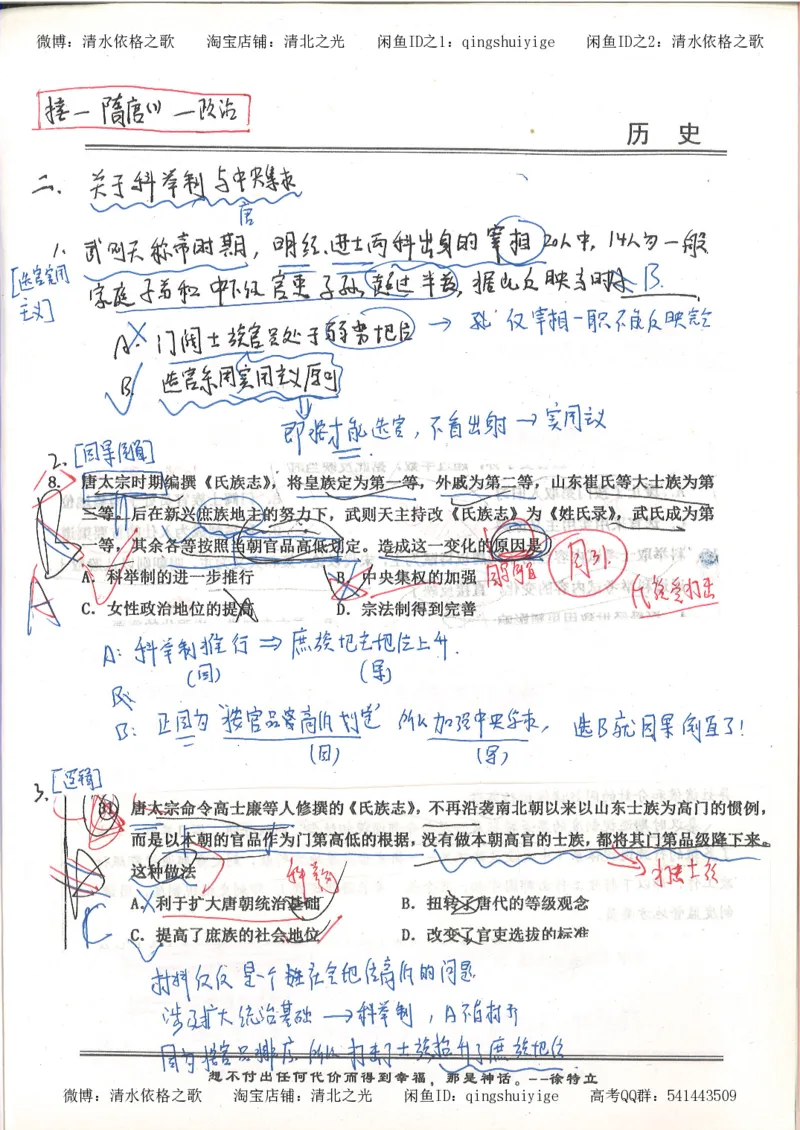 微博：清水依格之歌 淘宝店铺：清北之光 闲鱼ID之1：qingshuiyige 闲鱼ID之2：清水依格之歌
接一 隋唐(1) 一政治
历 史
二. 关于科举制与中央集权
唐
1. 武则天称帝时期，明经、进士两科出身的宰相20人中，14人为一般
[选官实用主义]
家庭子弟和中下级官吏子孙超过半数，据此反映当时 B.
A. 门阀士族官员处于弱势地位 → 仅宰相一职不能反映完全
B. 选官采用实用主义原则
即据才能选官，不看出身 → 实用主义
2. [因果倒置]
8. 唐太宗时期编撰《氏族志》，将皇族定为第一等，外戚为第二等，山东崔氏等大士族为第
三等。后在新兴庶族地主的努力下，武则天主持改《氏族志》为《姓氏录》，武氏成为第
一等，其余各等按照当朝官品高低划定。造成这一变化的原因是
A
A．科举制的进一步推行 B．中央集权的加强 因果倒置
因列．
C．女性政治地位的提高 D．宗法制得到完善
A: 科举制推行 ⇒ 庶族地主地位上升.
(因) (果)
B: 正因为“按官品高低划定” 所以加强中央集权，选B就因果倒置了！
(因) (果)
3. [逻辑]
31 唐太宗命令高士廉等人修撰的《氏族志》，不再沿袭南北朝以来以山东士族为高门的惯例，
而是以本朝的官品作为门第高低的根据，没有做本朝高官的士族，都将其门第品级降下来。
这种做法 科举制 打击士族
A．利于扩大唐朝统治基础 B．扭转了唐代的等级观念
C
C．提高了庶族的社会地位 D．改变了官吏选拔的标准
材料仅仅是一个社会地位高低的问题
涉及扩大统治基础 → 科举制，A不符材料
因为按官品排序，所以打击了士族抬升了庶族地位
想不付出任何代价而得到幸福，那是神话。--徐特立
微博：清水依格之歌 淘宝店铺：清北之光 闲鱼ID：qingshuiyige 高考QQ群：541443509